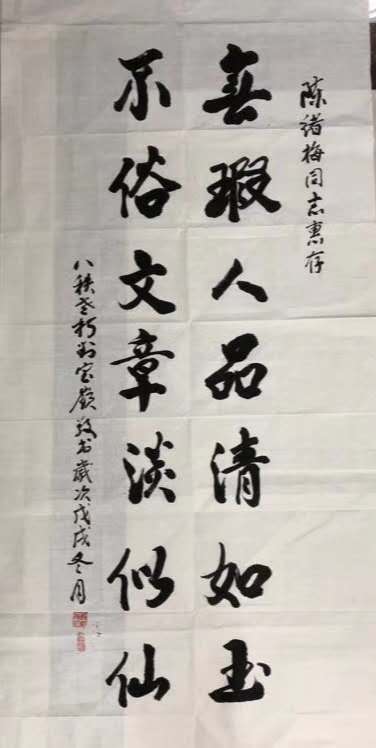 陈绪梅同志惠存
無瑕人品清如玉
不俗文章淡似仙
八秩老朽刘宝嶺敬书歲次戊戌冬月